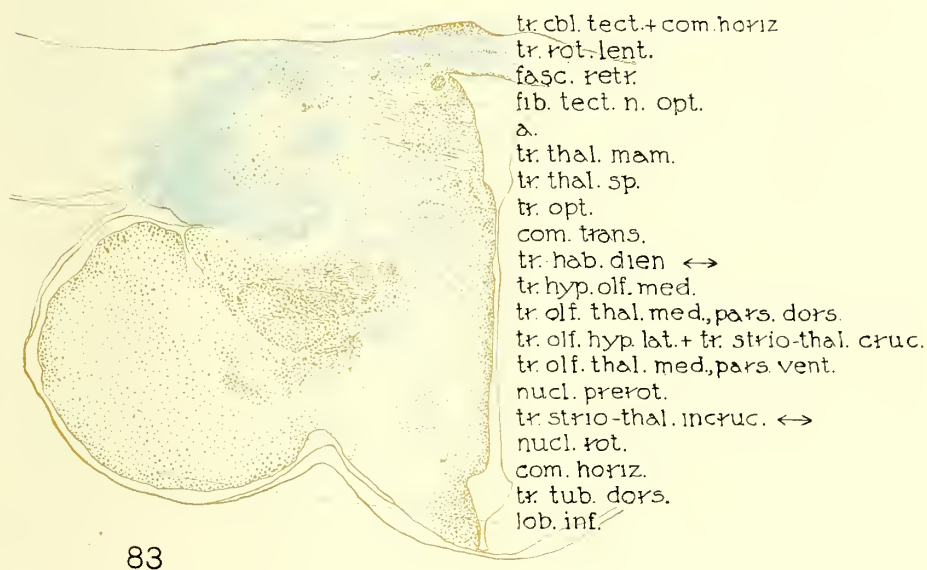 tr. cbl. tect. + com. horiz
tr. rot. lent.
fasc. retr.
fib. tect. n. opt.
a.
tr. thal. mam.
tr. thal. sp.
tr. opt.
com. trans.
tr. hab. dien ↔
tr. hyp. olf. med.
tr. olf. thal. med., pars. dors.
tr. olf. hyp. lat. + tr. strio-thal. cruc.
tr. olf. thal. med., pars vent.
nucl. prerot.
tr. strio-thal. incruc. ↔
nucl. rot.
com. horiz.
tr. tub. dors.
lob. inf.
83